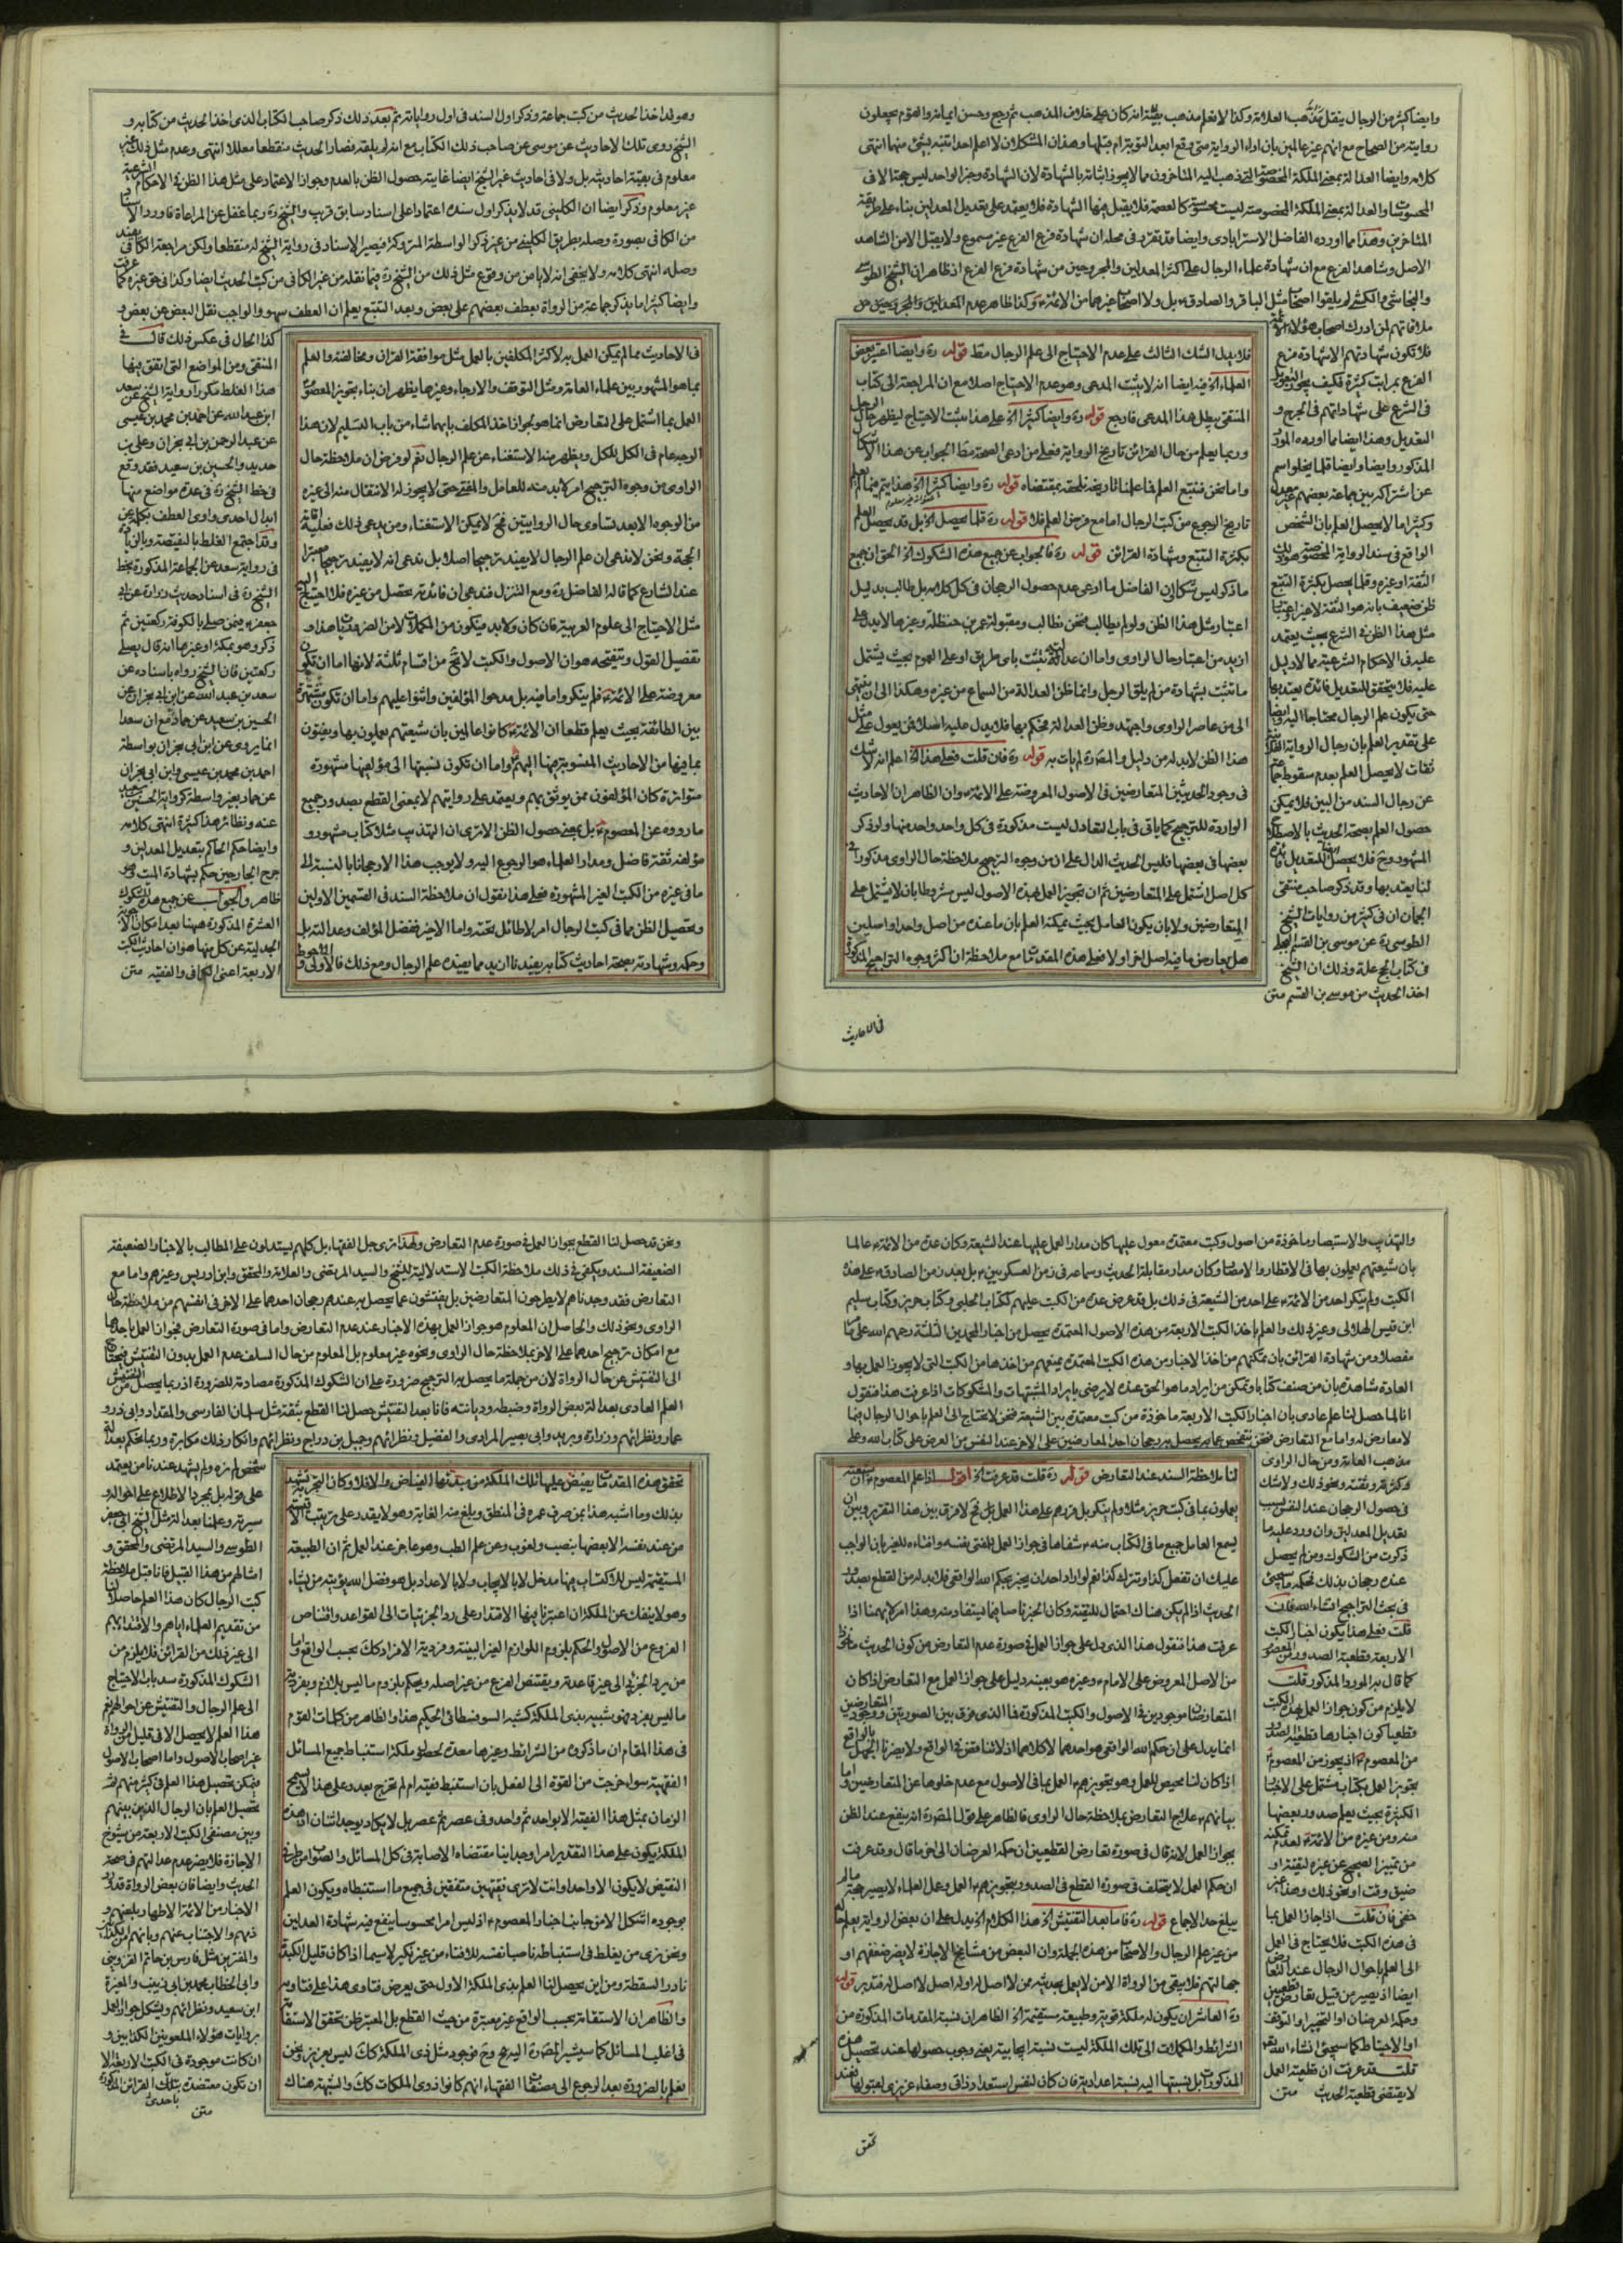 وايضا كثير من الرجال ينقل مذهب العلامة وكذا لا نعلم مذهب بقية انه كان على خلاف المذهب ثم رجع وحسن ايمانه والقوم يجعلون
روايته من الصحاح مع انهم غير عالمين بان اداء الرواية متى وقع ابعد التوبة ام قبلها وهذان المشكلان لا اعلم احدا تنبه بشئ منها انتهى
كلامه وايضا العدالة بمعنى الملكة المخصوصة التى ذهب اليه المتاخرون مما لا يجوز اثباته بالشهادة لان الشهادة وخبر الواحد ليس حجة الا فى
المحسوسات والعدالة بمعنى الملكة المخصوصة ليست محسوسة كالعصمة فلا يقبل فيها الشهادة فلا يعتمد على تعديل المعدلين بناء على طريقة
المتاخرين وهذا مما اورده الفاضل الاسترابادى وايضا قد تقرر فى محله ان شهادة فرع الفرع غير مسموع ولا يقبل الا من الشاهد
الاصل وشاهد الفرع مع ان شهادة علماء الرجال على اكثر المعدلين والمجروحين من شهادة فرع الفرع اذ ظاهر ان الشيخ الطوسى
والنجاشى والكشى لم يلقوا اصحاب مثل الباقر والصادق بل ولا اصحاب غيرهما من الائمة وكذا ظاهر عدم
ملاقاتهم لمن ادرك اصحاب هؤلاء الائمة
فلا تكون شهادتهم الا شهادة فرع
الفرع بمراتب كثيرة فكيف يجوز التعويل
فى الشرع على شهاداتهم فى الجرح و
التعديل وهذا ايضا مما اورده المورد
المذكور وايضا وايضا قلما يخلو اسم
عن اشتراكه بين جماعة بعضهم غير معدل
وكثيرا ما لا يحصل العلم بان الشخص
الواقع فى سند الرواية المخصوصة هو ذلك
الثقة او غيره وقلما يحصل بكثرة التتبع
ظن ضعيف بانه هو الثقة لا غير واعتبار
مثل هذا الظن فى الشرع بحيث يعتمد
عليه فى الاحكام الشرعية مما لا دليل
عليه فلا يتحقق للتعديل فائدة يعتد بها
حتى يكون علم الرجال محتاجا اليه وايضا
على تقدير العلم بان رجال الرواية
ثقات لا يحصل العلم بعدم سقوط جماعة
عن رجال السند من البين فلا يمكن
حصول العلم بصحة الحديث بالاصطلاح
المشهور وح فلا يحصل للتعديل فائدة
لنا يعتد بها وقد ذكر صاحب منتقى
الجمان ان فى كثير من روايات الشيخ
الطوسى ره عن موسى بن القسم البجلى
فى كتاب الحج علة وذلك ان الشيخ
اخذ الحديث من موسى بن القسم متن
فلا يبدل الشك الثالث على عدم الاحتياج الى علم الرجال مط قوله ره وايضا اعتبر بعض
العلماء الخ فيه ايضا انه لا يثبت المدعى وهو عدم الاحتياج اصلا مع ان المراجعة الى كتاب
المنتقى يبطل هذا المدعى فارجع قوله ره وايضا كثيرا الخ على هذا يثبت الاحتياج ليظهر حال الرجال
وربما يعلم من حال القرائن تاريخ الرواية فعلى من ادعى الصحة مط الجواب عن هذا الاشكال
واما نحن فنتبع العلم فما علمنا تاريخه نلحقه بمقتضاه قوله ره وايضا كثيرا الخ هذا يتم فيما لم يعلم
تاريخ الرجوع من كتب الرجال اما مع فرض العلم فلا قوله ره قلما يحصل الخ بل قد يحصل العلم
بكثرة التتبع وشهادة القرائن قوله ره فالجواب عن جميع هذه الشكوك الخ الحق ان جميع
ما ذكر ليس شكا لان الفاضل ما ادعى عدم حصول الرجحان فى كل كلامه بل طالب بدليل
اعتبار مثل هذا الظن ولو لم يطالب فنحن نطالب ومقبولة عمر بن حنظلة وغيرها لا يدل على
ازيد من اعتبار حال الراوى واما ان عدالته تثبت باى طريق او على العموم بحيث يشتمل
ما تثبت بشهادة من لم يلق الرجل وانما ظن العدالة من السماع من غيره وهكذا الى ان ينتهى
الى من عاصر الراوى واجتهد وظن العدالة فحكم بها فلا يدل عليه اصلا فمن يعول على مثل
هذا الظن لابد له من دليل والمص ره لم يات به قوله ره فان قلت فعلى هذا الخ اعلم انه لا شك
فى وجود الحديثين المتعارضين فى الاصول المعروضة على الائمة وان الظاهر ان الاحاديث
الواردة للترجيح كما ياتى فى باب التعادل ليست مذكورة فى كل واحد واحد منها ولو ذكر
بعضها فى بعضها فليس الحديث الدال على ان من وجوه الترجيح ملاحظة حال الراوى مذكورا فى
كل اصل اشتمل على المتعارضين ثم ان تجويز العمل بهذه الاصول ليس مشروطا بان لا يشتمل على
المتعارضين ولا بان يكون العامل بحيث يمكنه العلم بان ما عنده من اصل واحد او اصلين
هل يعارض ما فيه اصل اخر او لا فعلى هذه المقدمات مع ملاحظة ان اكثر وجوه التراجيح المذكورة
فى الاحاديث
وهو لما اخذ الحديث من كتب جماعة وذكر اول السند فى اول رواياته ثم بعد ذلك ذكر صاحب الكتاب الذى اخذ الحديث من كتابه و
الشيخ روى تلك الاحاديث عن موسى عن صاحب ذلك الكتاب مع انه لم يلقه فصار الحديث منقطعا معللا انتهى وعدم مثل ذلك غير
معلوم فى بقية احاديثه بل ولا فى احاديث غير الشيخ ايضا غايته حصول الظن بالعدم وجواز الاعتماد على مثل هذا الظن فى الاحكام الشرعية
غير معلوم وذكر ايضا ان الكلينى قد لا يذكر اول سنده اعتمادا على اسناد سابق قريب والشيخ ره ربما غفل عن المراعاة فاورد الاسناد
من الكافى بصورة وصله بطريق الكلينى من غير ذكر الواسطة المتروكة فيصير الاسناد فى رواية الشيخ له منقطعا ولكن مراجعة الكافى يفيد
وصله انتهى كلامه ولا يخفى انه لا يامن من وقوع مثل ذلك من الشيخ ره فيما نقله من غير الكافى من كتب الحديث ايضا وكذا فى حق غيره كما عرفت
وايضا كثيرا ما يذكر جماعة من الرواة بعطف بعضهم على بعض وبعد التتبع يعلم ان العطف سهو والواجب نقل البعض عن بعض و
كذا الحال فى عكس ذلك قال فى
المنتقى ومن المواضع التى اتفق فيها
هذا الغلط مكررا رواية الشيخ عن سعد
ابن عبد الله عن احمد بن محمد بن عيسى
عن عبد الرحمن بن ابى نجران وعلى بن
حديد والحسين بن سعيد فقد وقع
فى خط الشيخ ره فى عدة مواضع منها
ابدال احدى واوى العطف بكلمة عن
وقد اجتمع الغلط بالنقيصة وبالزيادة
فى رواية سعد عن الجماعة المذكورة بخط
الشيخ ره فى اسناد حديث زرارة عن ابى
جعفر فيمن صلى بالكوفة ركعتين ثم
ذكر وهو بمكة او غيرها انه قال يصلى
ركعتين فان الشيخ رواه باسناده عن
سعد بن عبد الله عن ابن ابى نجران عن
الحسين بن سعيد عن حماد مع ان سعدا
انما يروى عن ابن ابى نجران بواسطة
احمد بن محمد بن عيسى وابن ابى نجران
عن حماد بغير واسطة كرواية الحسين بن سعيد
عنه ونظائر هذا كثيرة انتهى كلامه
وايضا حكم الحاكم بتعديل المعدلين و
جرح الجارحين حكم بشهادة الميت وهو
ظاهر والجواب عن جميع هذه الشكوك
العشرة المذكورة ههنا بعد امكان الاجوبة
الجدلية عن كل منها هو ان احاديث الكتب
الاربعة اعنى الكافى والفقيه متن
فى الاحاديث مما لم يمكن العمل به لاكثر المكلفين بالعمل مثل موافقة القران ومخالفته والعلم
بما هو المشهور بين علماء العامة ومثل التوقف والارجاء وغيرها يظهر ان بناء تجويز المعصوم
العمل بما اشتمل على التعارض انما هو بجواز اخذ المكلف بايهما شاء من باب التسليم لان هذا
الوجه عام فى الكل للكل ويظهر بهذا الاستغناء عن علم الرجال نعم لو فرض ان ملاحظة حال
الراوى من وجوه الترجيح امر لابد منه للعامل والمفتى حتى لا يجوز له الانتقال منه الى غيره
من الوجوه الا بعد تساوى حال الروايتين فح لا يمكن الاستغناء ومن يدعى ذلك فعليه اقامة
الحجة ونحن لا ندعى ان علم الرجال لا يفيد ترجيحا اصلا بل ندعى انه لا يفيد ترجيحا معتبرا
عند الشارع كما قاله الفاضل ره ومع التنزل فندعى ان فائدته تحصل من غيره فلا احتياج اليه
مثل الاحتياج الى علوم العربية فان كان ولابد فيكون من المكملات لا من الضروريات هذا و
تفصيل القول وتنقيحه هو ان الاصول والكتب لا تخ من اقسام ثلثة لانها اما ان تكون
معروضة على الائمة فلم ينكروا ما فيه بل مدحوا المؤلفين واثنوا عليهم واما ان تكون مشتهرة
بين الطائفة بحيث يعلم قطعا ان الائمة كانوا عالمين بان شيعتهم يعملون بها ويفتون
بما فيها من الاحاديث المنسوبة فيها اليهم واما ان تكون نسبتها الى مؤلفيها مشهورة
متواترة كان المؤلفون ممن يوثق بهم ويعتمد على روايتهم لا بمعنى القطع بصدور جميع
ما رووه عن المعصوم بل بمعنى حصول الظن الا ترى ان التهذيب مثلا كتاب مشهور و
مؤلفه ثقة فاضل ومدار العلماء هو الرجوع اليه ولا يوجب هذا الا رجحانا بالنسبة الى
ما فى غيره من الكتب الغير المشهورة فعلى هذا نقول ان ملاحظة السند فى القسمين الاولين
وتحصيل الظن مما فى كتب الرجال امر لا طائل تحته واما الاخير ففضل المؤلف وعدالته بل
وحكمه وشهادته بصحة احاديث كتابه يفيدنا ازيد مما يفيده علم الرجال ومع ذلك فالاولى والاحوط
والتهذيب والاستبصار ماخوذة من اصول وكتب معتمدة معول عليها كان مدار العمل عليها عند الشيعة وكان عدة من الائمة عالما
بان شيعتهم يعملون بها فى الاقطار والامصار وكان مدار مقابلة الحديث وسماعه فى زمن العسكريين بل بعد زمن الصادق على هذه
الكتب ولم ينكر احد من الائمة على احد من الشيعة فى ذلك بل قد عرض عدة من الكتب عليهم ككتاب الحلبى وكتاب حريز وكتاب سليم
ابن قيس الهلالى وغير ذلك والعلم باخذ الكتب الاربعة من هذه الاصول المعتمدة يحصل من اخبار المحمدين الثلثة رحمهم الله على ما
مفصلا ومن شهادة القرائن بان تمكنهم من اخذ الاخبار من هذه الكتب المعتمدة يمنعهم من اخذها من الكتب التى لا يجوز العمل بها و
العادة شاهدة بان من صنف كتابا وتمكن من ايراد ما هو الحق عنده لا يرضى بايراد المشتبهات والمشكوكات اذا عرفت هذا فنقول
انا لما حصل لنا علم عادى بان اخبار الكتب الاربعة ماخوذة من كتب معتمدة بين الشيعة فنحن لا نحتاج الى العلم باحوال الرجال فيما
لا معارض له واما مع التعارض فنحن نتفحص عما به يحصل به رجحان احد المعارضين على الاخر عند النفس من العرض على كتاب الله وعلى
مذهب العامة ومن حال الراوى
وكثرته وثقته ونحو ذلك ولا شك
فى حصول الرجحان عند النفس بسبب
تعديل المعدلين وان ورد عليه ما
ذكرت من الشكوك ومن لم يحصل
عنده رجحان بذلك فحكمه ما سيجئ
فى بحث الترجيح انشاء الله فان
قلت فعلى هذا يكون اخبار الكتب
الاربعة قطعية الصدور من المعصوم
كما قال به المورد المذكور قلت
لا يلزم من كون جواز العمل بهذه الكتب
قطعيا كون اخبارها قطعية الصدور
من المعصوم اذ يجوز من المعصوم
تجويز العمل بكتاب مشتمل على الاخبار
الكثيرة بحيث يعلم صدور بعضها
منه ومن غيره من الائمة لعدم تمكنه
من تمييز الصحيح عن غيره لتقية او
ضيق وقت او نحو ذلك وهذا غير
خفى فان قلت اذا جاز العمل بما
فى هذه الكتب فلا يحتاج فى العمل
الى العلم باحوال الرجال عند التعارض
ايضا اذ يصير من قبيل تعارض قطعيين
وحكمه العرضان او التخيير او التوقف
او الاحتياط كما سيجئ انشاء الله تعالى
قلت قد عرفت ان قطعية العمل
لا يقتضى قطعية الحديث متن
لنا ملاحظة السند عند التعارض قوله ره قلت قد عرفت الخ اقول اذا علم المعصوم ان شيعته
يعملون بما فى كتب حريز مثلا ولم ينكر بل قررهم على هذا العمل بل فح لا فرق بين هذا التقرير وبين ان
يسمع العامل جميع ما فى الكتاب منه شفاها فى جواز العمل للمفتى بنفسه وافتاءه للغير بان الواجب
عليك ان تفعل كذا وتترك كذا نعم لو اراد احد ان يخبر بحكم الله الواقعى فلابد له من القطع بصدور
الحديث اذا لم يكن هناك احتمال للتقية وكان الخبر نصا فيما يستفاد منه وهذا امر لا يهمنا اذا
عرفت هذا فنقول هذا الذى دل على جواز العمل فى صورة عدم التعارض من كون الحديث ماخوذا
من الاصل المعروض على الامام وغيره هو بعينه دليل على جواز العمل مع التعارض اذا كان
المتعارضان موجودين فى الاصول والكتب المذكورة فما الذى فرق بين الصورتين ووجود المتعارضين
انما يدل على ان حكم الله الواقعى هو احدهما لا كلاهما اذ لا تناقض فى الواقع ولا يضرنا الجهل بالواقع
اذا كان لنا محيص للعمل وهو تجويزهم العمل بما فى الاصول مع عدم خلوها عن المتعارضين واما
بيانهم علاج التعارض بملاحظة حال الراوى فالظاهر على قول المص ره انه ينفع عند الظن
بجواز العمل لانه قال فى صورة تعارض القطعيين ان حكمه العرضان الى اخر ما قال وقد عرفت
ان حكم العمل لا يختلف فى صورة القطع فى الصدور وبتجويزهم العمل وعمل العلماء لا يصير حجة مالم
يبلغ حد الاجماع قوله ره فانا بعد التفتيش الخ هذا الكلام الخ يدل على ان بعض الرواية يعلم حاله
من غير علم الرجال والاصحاب من هذه الجملة وان البعض من مشايخ الاجازة لا يضر ضعفهم او
جهالتهم فلا يبقى من الرواة الا من لا يعمل بحديثه ممن لا اصل له او له اصل لا اصل له فتدبر قوله
ره العاشر ان يكون له ملكة قوية وطبيعة مستقيمة الخ الظاهر ان نسبة المقدمات المذكورة من
الشرائط والمكملات الى تلك الملكة ليست نسبة ايجابية بمعنى وجوب حصولها عند تحصيل هذه
المذكورات بل نسبتها اليه نسبة اعدادية فان كان لنفس استعداد ذاتى وصفاء غريزى لقبولها فعند
تحقق
ونحن قد حصل لنا القطع بجواز العمل فى صورة عدم التعارض ولهذا ترى جل الفقهاء بل كلهم يستدلون على المطالب بالاخبار الضعيفة
الضعيفة السند ويكفى فى ذلك ملاحظة الكتب الاستدلالية للشيخ والسيد المرتضى والعلامة والمحقق وابن ادريس وغيرهم واما مع
التعارض فقد وجدناهم لا يطرحون المتعارضين بل يفتشون عما يحصل به عندهم رجحان احدهما على الاخر فى انفسهم من ملاحظة حال
الراوى ونحو ذلك والحاصل ان المعلوم هو جواز العمل بهذه الاخبار عند عدم التعارض واما فى صورة التعارض فجواز العمل باحدهما
مع امكان ترجيح احدهما على الاخر بملاحظة حال الراوى ونحوه غير معلوم بل المعلوم من حال السلف عدم العمل بدون التفتيش فيحتاج
الى التفتيش عن حال الرواة لان من جملة ما يحصل به الترجيح ضرورة على ان الشكوك المذكورة مصادمة للضرورة اذ ربما يحصل من التفتيش
العلم العادى بعدالة بعض الرواة وضبطه وديانته فانا بعد التفتيش حصل لنا القطع بثقة مثل سلمان الفارسى والمقداد وابى ذر و
عمار ونظرائهم وزرارة وبريد وابى بصير المرادى والفضيل ونظرائهم وجميل بن دراج ونظرائهم وانكار ذلك مكابرة وربما يحكم بعدالة
شخص لم نره ولم يشهد عندنا من يعتمد
على قوله بل بمجرد الاطلاع على احواله و
سيرته وعلمنا بعدالة مثل الشيخ ابى جعفر
الطوسى والسيد المرتضى والمحقق و
امثالهم من هذا القبيل فانا قبل ملاحظة
كتب الرجال كان هذا العلم حاصلا لنا
من تقديم العلماء اياهم والاقتداء بهم
الى غير ذلك من القرائن فلا يلزم من
الشكوك المذكورة سد باب الاحتياج
الى علم الرجال والتفتيش عن احوالهم نعم
هذا العلم لا يحصل الا فى قليل من الرواة
غير اصحاب الاصول واما اصحاب الاصول
فيمكن تحصيل هذا العلم فى كثير منهم لتيسر
تحصيل العلم بان الرجال الذين بينهم
وبين مصنفى الكتب الاربعة من شيوخ
الاجازة فلا يضر عدم عدالتهم فى صحة
الحديث وايضا فان بعض الرواة قد ورد
الاخبار من الائمة الاطهار بلعنهم و
ذمهم والاجتناب عنهم وبانهم من الكذابين
والمفترين مثل فارس بن حاتم القزوينى
وابى الخطاب محمد بن ابى زينب والمغيرة
ابن سعيد ونظرائهم ويشكل جواز العمل
بروايات هؤلاء الملعونين الكذابين و
ان كانت موجودة فى الكتب الاربعة الا
ان تكون معتضدة بتلك القرائن المذكورة
باحدى متن
تحقق هذه المقدمات يفيض عليها تلك الملكة من مبدئها الفياض والا فلا وكان التجربة تشهد
بذلك وما اشبه هذا بمن صرف عمره فى المنطق وبلغ منه الغاية وهو لا يقدر على ترتيب الاقيسة
من عند نفسه الا بعضها بنصب ولغوب ومن علم الطب وهو عاجز عند العمل ثم ان الطبيعة
المستقيمة ليس للاكتساب فيها مدخل لا بالايجاب ولا بالاعداد بل هو فضل الله يؤتيه من يشاء
وهو لا ينفك عن الملكة ان اعتبرنا فيها الاقتدار على رد الجزئيات الى القواعد واقتناص
الفروع من الاصول والحكم بلزوم اللوازم الغير البينة وفردية الافراد كك بحسب الواقع واما
من يرد الجزئى الى غير قاعدته ويقتنص الفرع من غير اصله ويحكم بلزوم ما ليس بلازم وبفردية
ما ليس بفرد فهو شبيه بذى الملكة كشبه السوفسطائى الحكيم هذا والظاهر من كلمات القوم
فى هذا المقام ان ما ذكروه من الشرائط وغيرها معدة لحصول ملكة استنباط جميع المسائل
الفقهية سواء خرجت من القوة الى الفعل بان استنبط فقيه ام لم تخرج بعد وعلى هذا لا يسمح
الزمان بمثل هذا الفقيه الا بواحد ثم واحد وفى عصر ثم عصر بل لا يكاد يوجد اثنان اذ هذه
الملكة يكون على هذا التقدير امرا وجدانيا مقتضاه الاصابة فى كل المسائل والصواب من طرفى
النقيض لا يكون الا واحدا وانت لا ترى فقيهين متفقين فى جميع ما استنبطاه ويكون العلم
بوجوده اشكل الا من جانبنا اخبار المعصوم اذ ليس امرا محسوسا ينفع فيه شهادة العدلين
ونحن نرى من يغلط فى استنباطه ناصبا نفسه للافتاء من غير نكير لا سيما اذا كان قليل الكبوة
نادر السقطة ومن اين يحصل لنا العلم بذى الملكة الاول حتى يعرض فتاوى هذا على فتاويه
والظاهر ان الاستقامة بحسب الواقع غير معتبرة من حيث القطع بل المعتبر ظن تحقق الاستقامة
فى اغلب المسائل كما سيشير المص ره اليه وح فوجود مثل ذى الملكة كك ليس بعزيز ونحن
نعلم بالضرورة بعد الرجوع الى مصنفات الفقهاء انهم كانوا ذوى الملكات كك والشبهة هناك